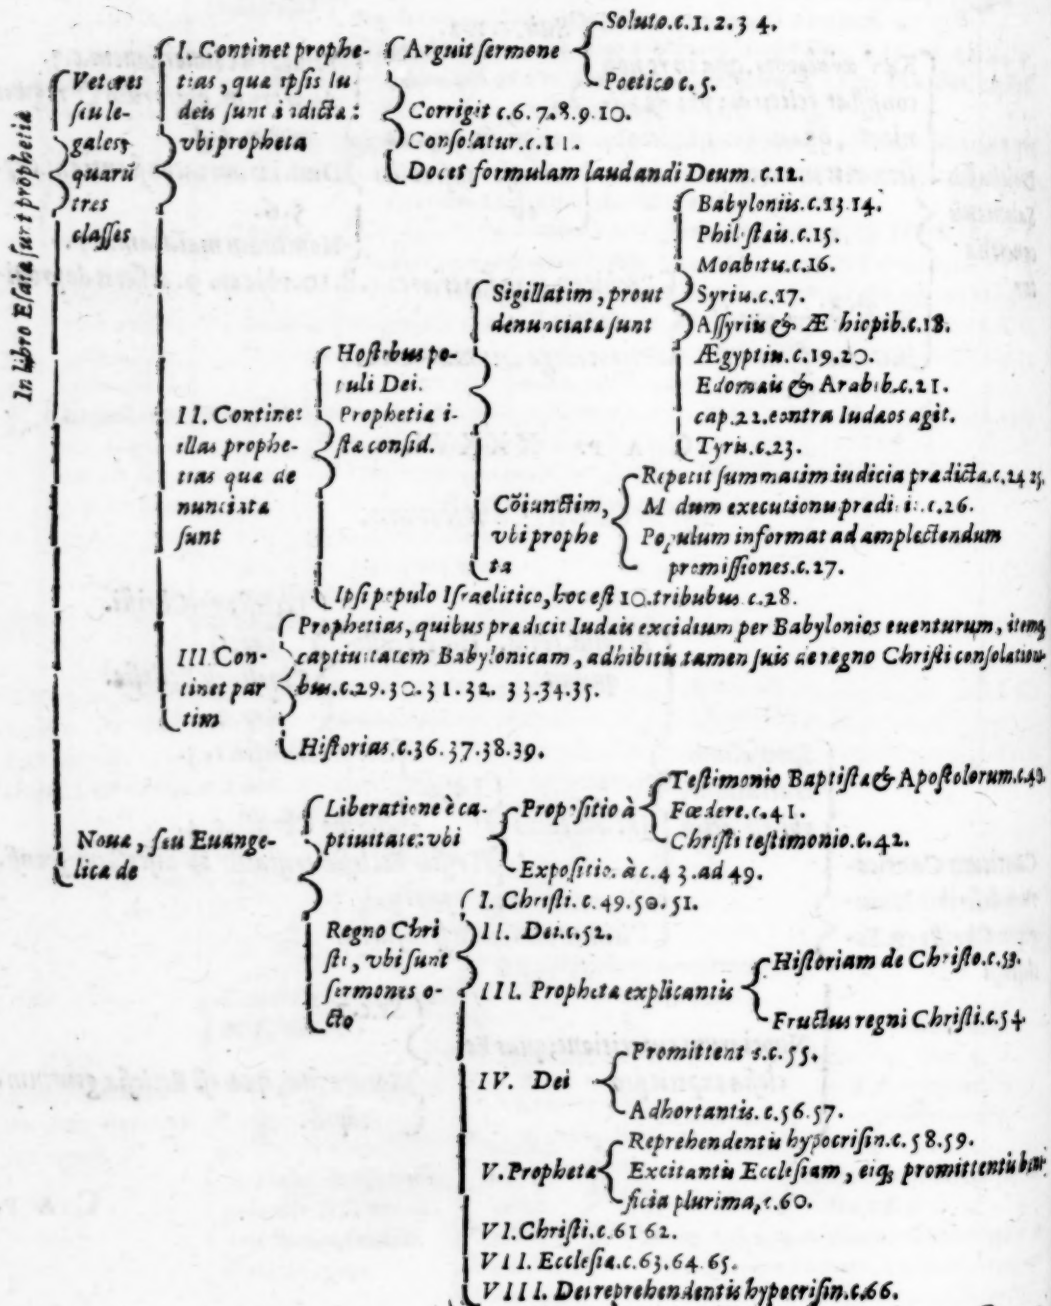 In libro Esaiæ sunt prophetiæ
Veteres
seu le-
gales
quarũ
tres
classes
I. Continet prophe-
tias, quæ ipsis Iu
dæis sunt prædictæ:
vbi propheta
Arguit sermone
Soluto.c.1.2.3 4.
Poetico c.5.
Corrigit c.6.7.8.9.10.
Consolatur.c.11.
Docet formulam laudandi Deum.c.12.
II. Continet
illas prophe-
tias quæ de
nunciatæ
sunt
Hostibus po-
puli Dei.
Prophetiæ i-
stæ consid.
Sigillatim, prout
denunciatæ sunt
Babyloniis.c.13.14.
Philistæis.c.15.
Moabitis.c.16.
Syriis.c.17.
Assyriis & Æthiopib.c.18.
Ægyptiis.c.19.20.
Edomæis & Arabib.c.21.
cap.22.contra Iudæos agit.
Tyriis.c.23.
Cõiunctim,
vbi prophe
ta
Repetit summatim iudicia prædicta.c.24 25.
Modum executionis prædicit.c.26.
Populum informat ad amplectendum
promissiones.c.27.
Ipsi populo Israelitico, hoc est 10.tribubus.c.28.
III. Con-
tinet par
tim
Prophetias, quibus prædicit Iudæis excidium per Babylonios euenturum, itemq;
captiuitatem Babylonicam, adhibitis tamen suis de regno Christi consolationi-
bus.c.29.30.31.32. 33.34.35.
Historias.c.36.37.38.39.
Nouæ, seu Euange-
licæ de
Liberatione è ca-
ptiuitate: vbi
Propositio à
Testimonio Baptistæ & Apostolorum.c.40.
Fœdere.c.41.
Christi testimonio.c.42.
Expositio. à c.43.ad 49.
Regno Chri
sti, vbi sunt
sermones o-
cto
I. Christi.c.49.50.51.
II. Dei.c.52.
III. Prophetæ explicantis
Historiam de Christo.c.53.
Fructus regni Christi.c.54
IV. Dei
Promittentis.c.55.
Adhortantis.c.56.57.
V. Prophetæ
Reprehendentis hypocrisin.c.58.59.
Excitantis Ecclesiam, eiq; promittentis bene-
ficia plurima, c.60.
VI. Christi.c.61 62.
VII. Ecclesiæ.c.63.64.65.
VIII. Dei reprehendentis hypocrisin.c.66.